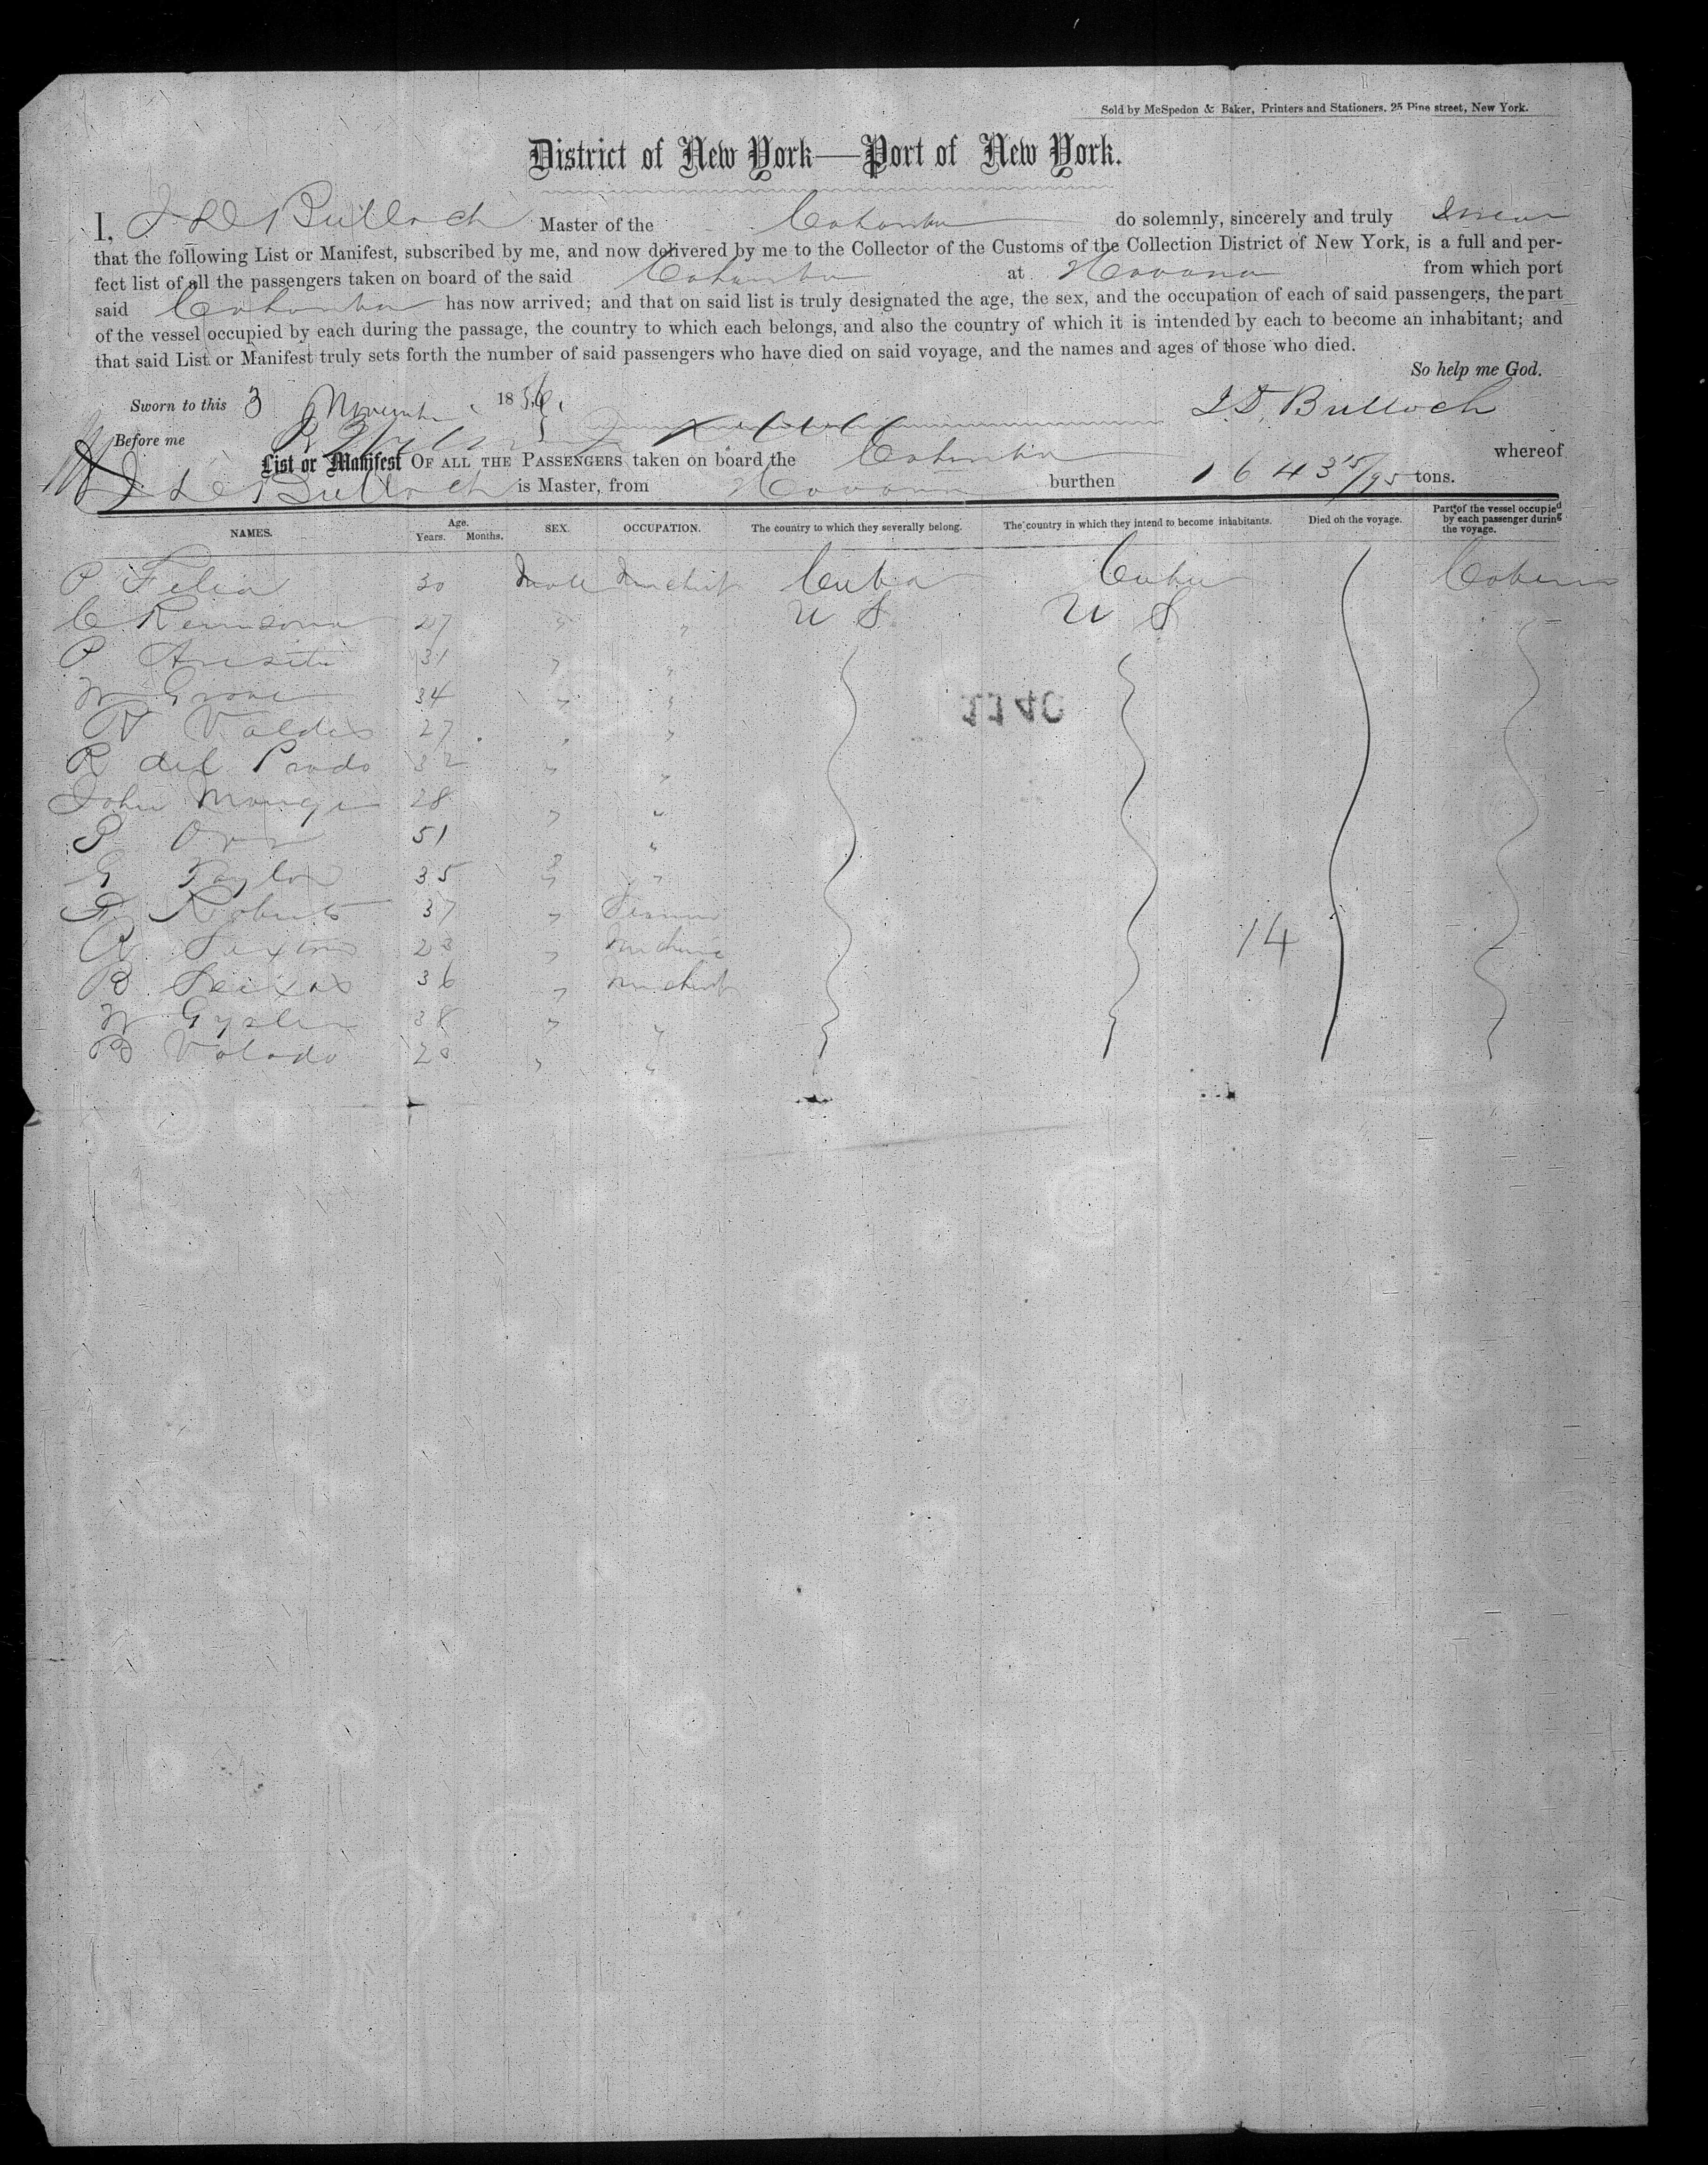 Sold by McSpedon & Baker, Printers and Stationers, 25 Pine street, New York.
District of New York—Port of New York.
I, J D Bulloch Master of the Cahawba do solemnly, sincerely and truly Swear
that the following List or Manifest, subscribed by me, and now delivered by me to the Collector of the Customs of the Collection District of New York, is a full and per-
fect list of all the passengers taken on board of the said Cahawba at Havana from which port
said Cahawba has now arrived; and that on said list is truly designated the age, the sex, and the occupation of each of said passengers, the part
of the vessel occupied by each during the passage, the country to which each belongs, and also the country of which it is intended by each to become an inhabitant; and
that said List or Manifest truly sets forth the number of said passengers who have died on said voyage, and the names and ages of those who died.
So help me God.
Sworn to this 3 November 1856 J D Bulloch
Before me
List or Manifest OF ALL THE PASSENGERS taken on board the Cahawba whereof
J D Bulloch is Master, from Havana burthen 1643 15/95 tons.
NAMES. Age. Years. Months. SEX. OCCUPATION. The country to which they severally belong. The country in which they intend to become inhabitants. Died on the voyage. Part of the vessel occupied by each passenger during the voyage.
P Felia 30 Male Merchant Cuba Cuba
C 27 " " U S U S
P 31 " "
W 34 " "
Valdes 27 " "
R del Prado 32 " "
John 28 " "
51 "
G Taylor 35 " "
Roberts 37 "
Sexton 23 "
B Seixas 36 " Merchant
W 38 " "
B Valado 28 " "
1140
14